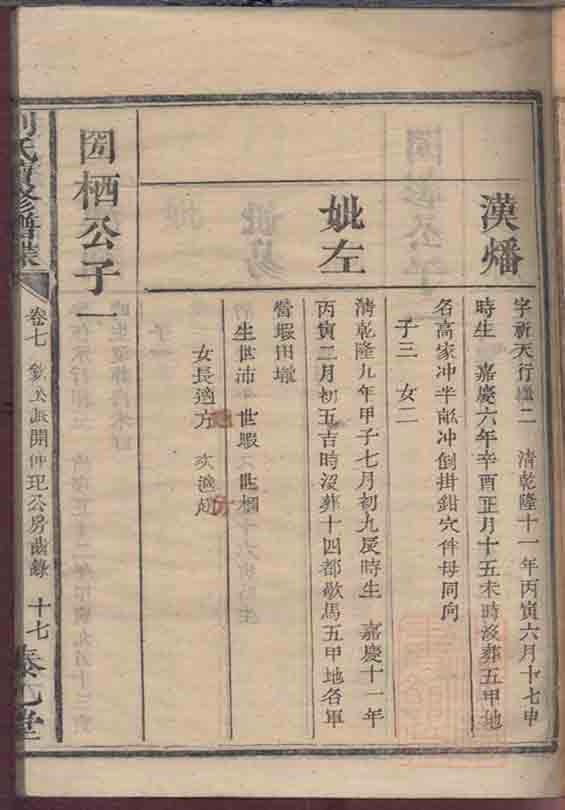 漢燔
字祈天行 二 清乾隆十一年丙寅六月十七申
時生 嘉慶六年辛酉正月十五未時沒葬五甲地
名高家冲半 冲倒掛鉗穴仵母同向
子三 女二
妣左
清乾隆九年甲子七月初九辰時生 嘉慶十一年
丙寅二月初五吉時沒葬十四都歇馬五甲地名軍
營堰田墩
生世沛 世暇 世棡
女長適方 次適趙
園栖公子一
氏 修譜
卷七 開仲玘公房齒錄 十七